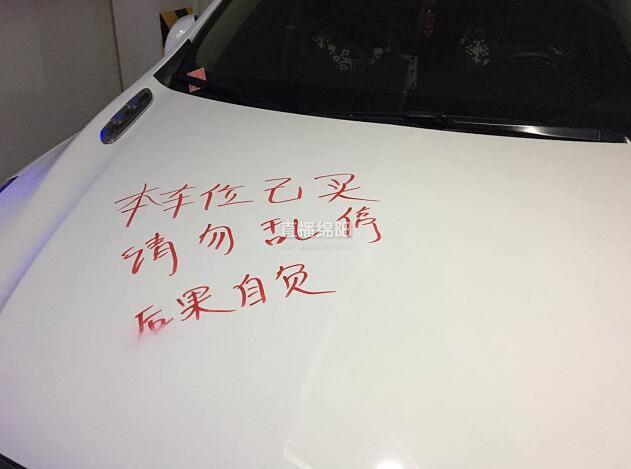 本车位已买
请勿乱停
后果自负
直播绵阳